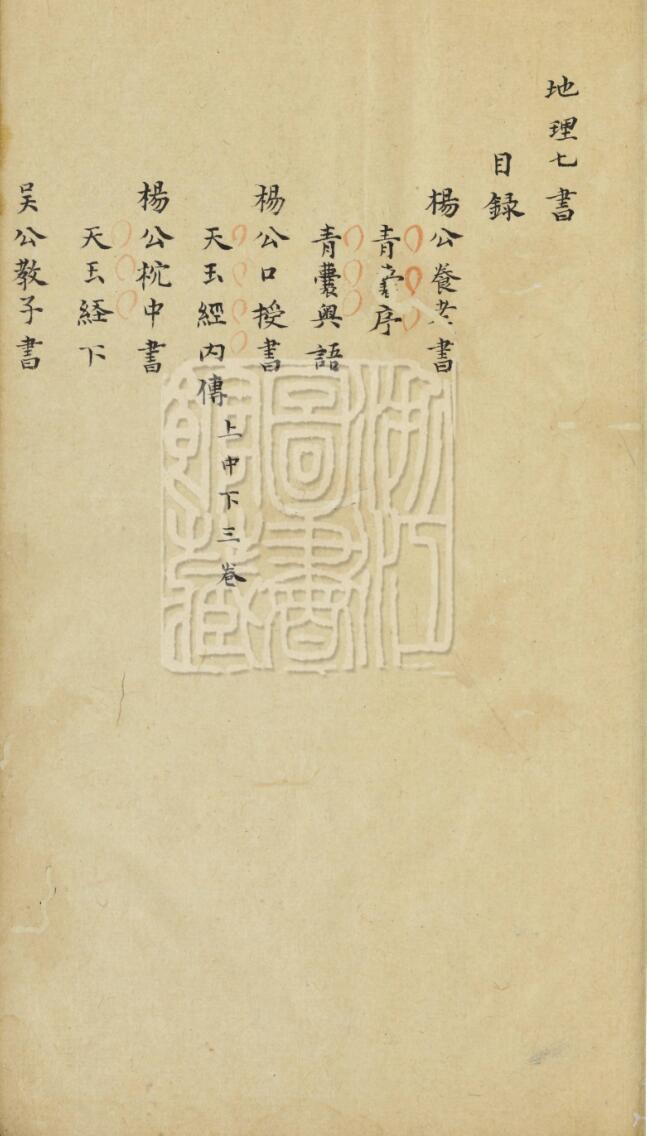 地理七書
目録
楊公養老書
青囊序
青囊奧語
楊公口授書
天玉經内傳上中下三卷
楊公枕中書
天玉経下
吴公教子書
浙江圖書館藏